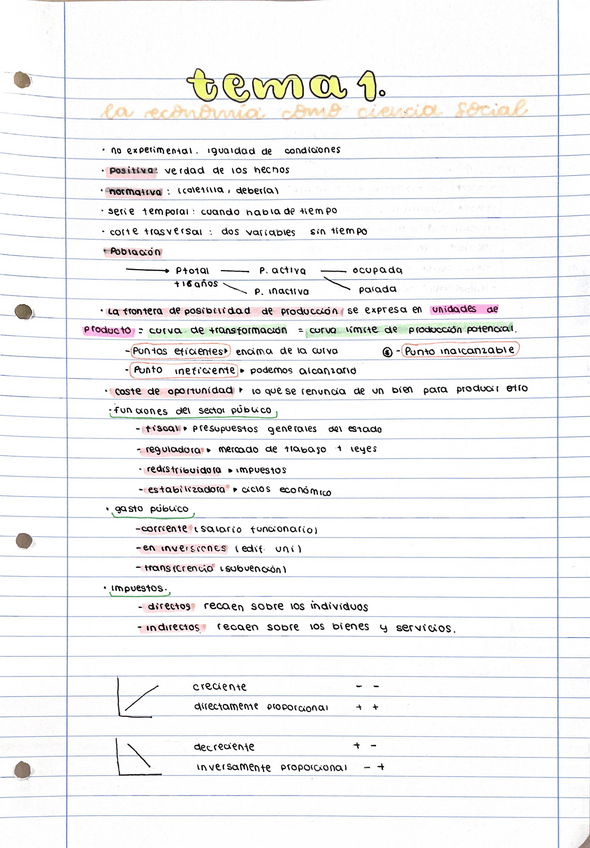 tema 1.
la economía como ciencia social
· no experimental. igualdad de condiciones
· Positiva: verdad de los hechos
· normativa : (coletilla, debería)
· serie temporal: cuando habla de tiempo
· corte trasversal : dos variables sin tiempo
· Población
Ptotal — P. activa — ocupada
+16 años P. inactiva parada
· La frontera de posibilidad de producción, se expresa en unidades de
producto, = curva de transformación = curva límite de producción potencial.
- Puntos eficientes encima de la curva - Punto inalcanzable
- Punto ineficiente podemos alcanzarlo
· coste de oportunidad lo que se renuncia de un bien para producir otro
· funciones del sector público
- fiscal presupuestos generales del estado
- reguladora mercado de trabajo + leyes
· redistribuidora impuestos
- estabilizadora ciclos económico
· gasto público
- corriente (salario funcionario)
- en inversiones (edif. uni)
- transferencia (subvención)
· impuestos.
- directos recaen sobre los individuos
- indirectos recaen sobre los bienes y servicios.
creciente - -
directamente proporcional + +
decreciente + -
inversamente proporcional - +